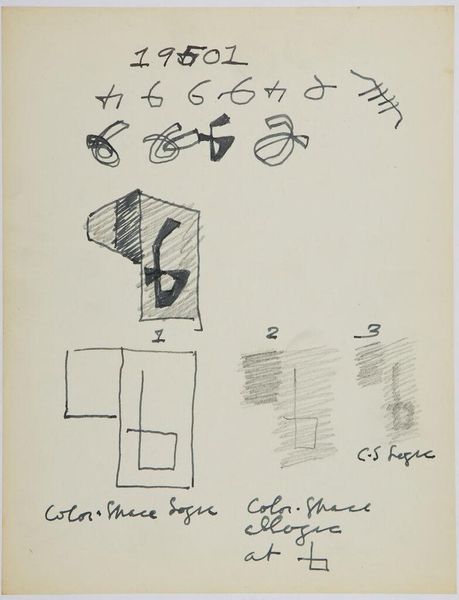 19501
1
2
3
C-S Logic
Color-Space Logic
Color-Space
at